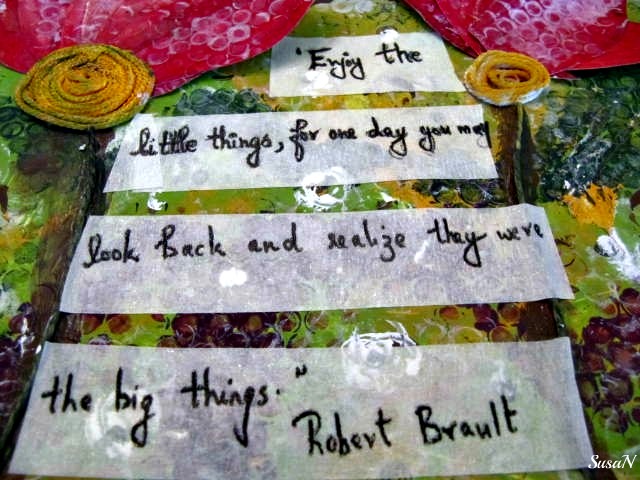 "Enjoy the
little things, for one day you may
look Back and realize they were
the big things."
Robert Brault
SusaN